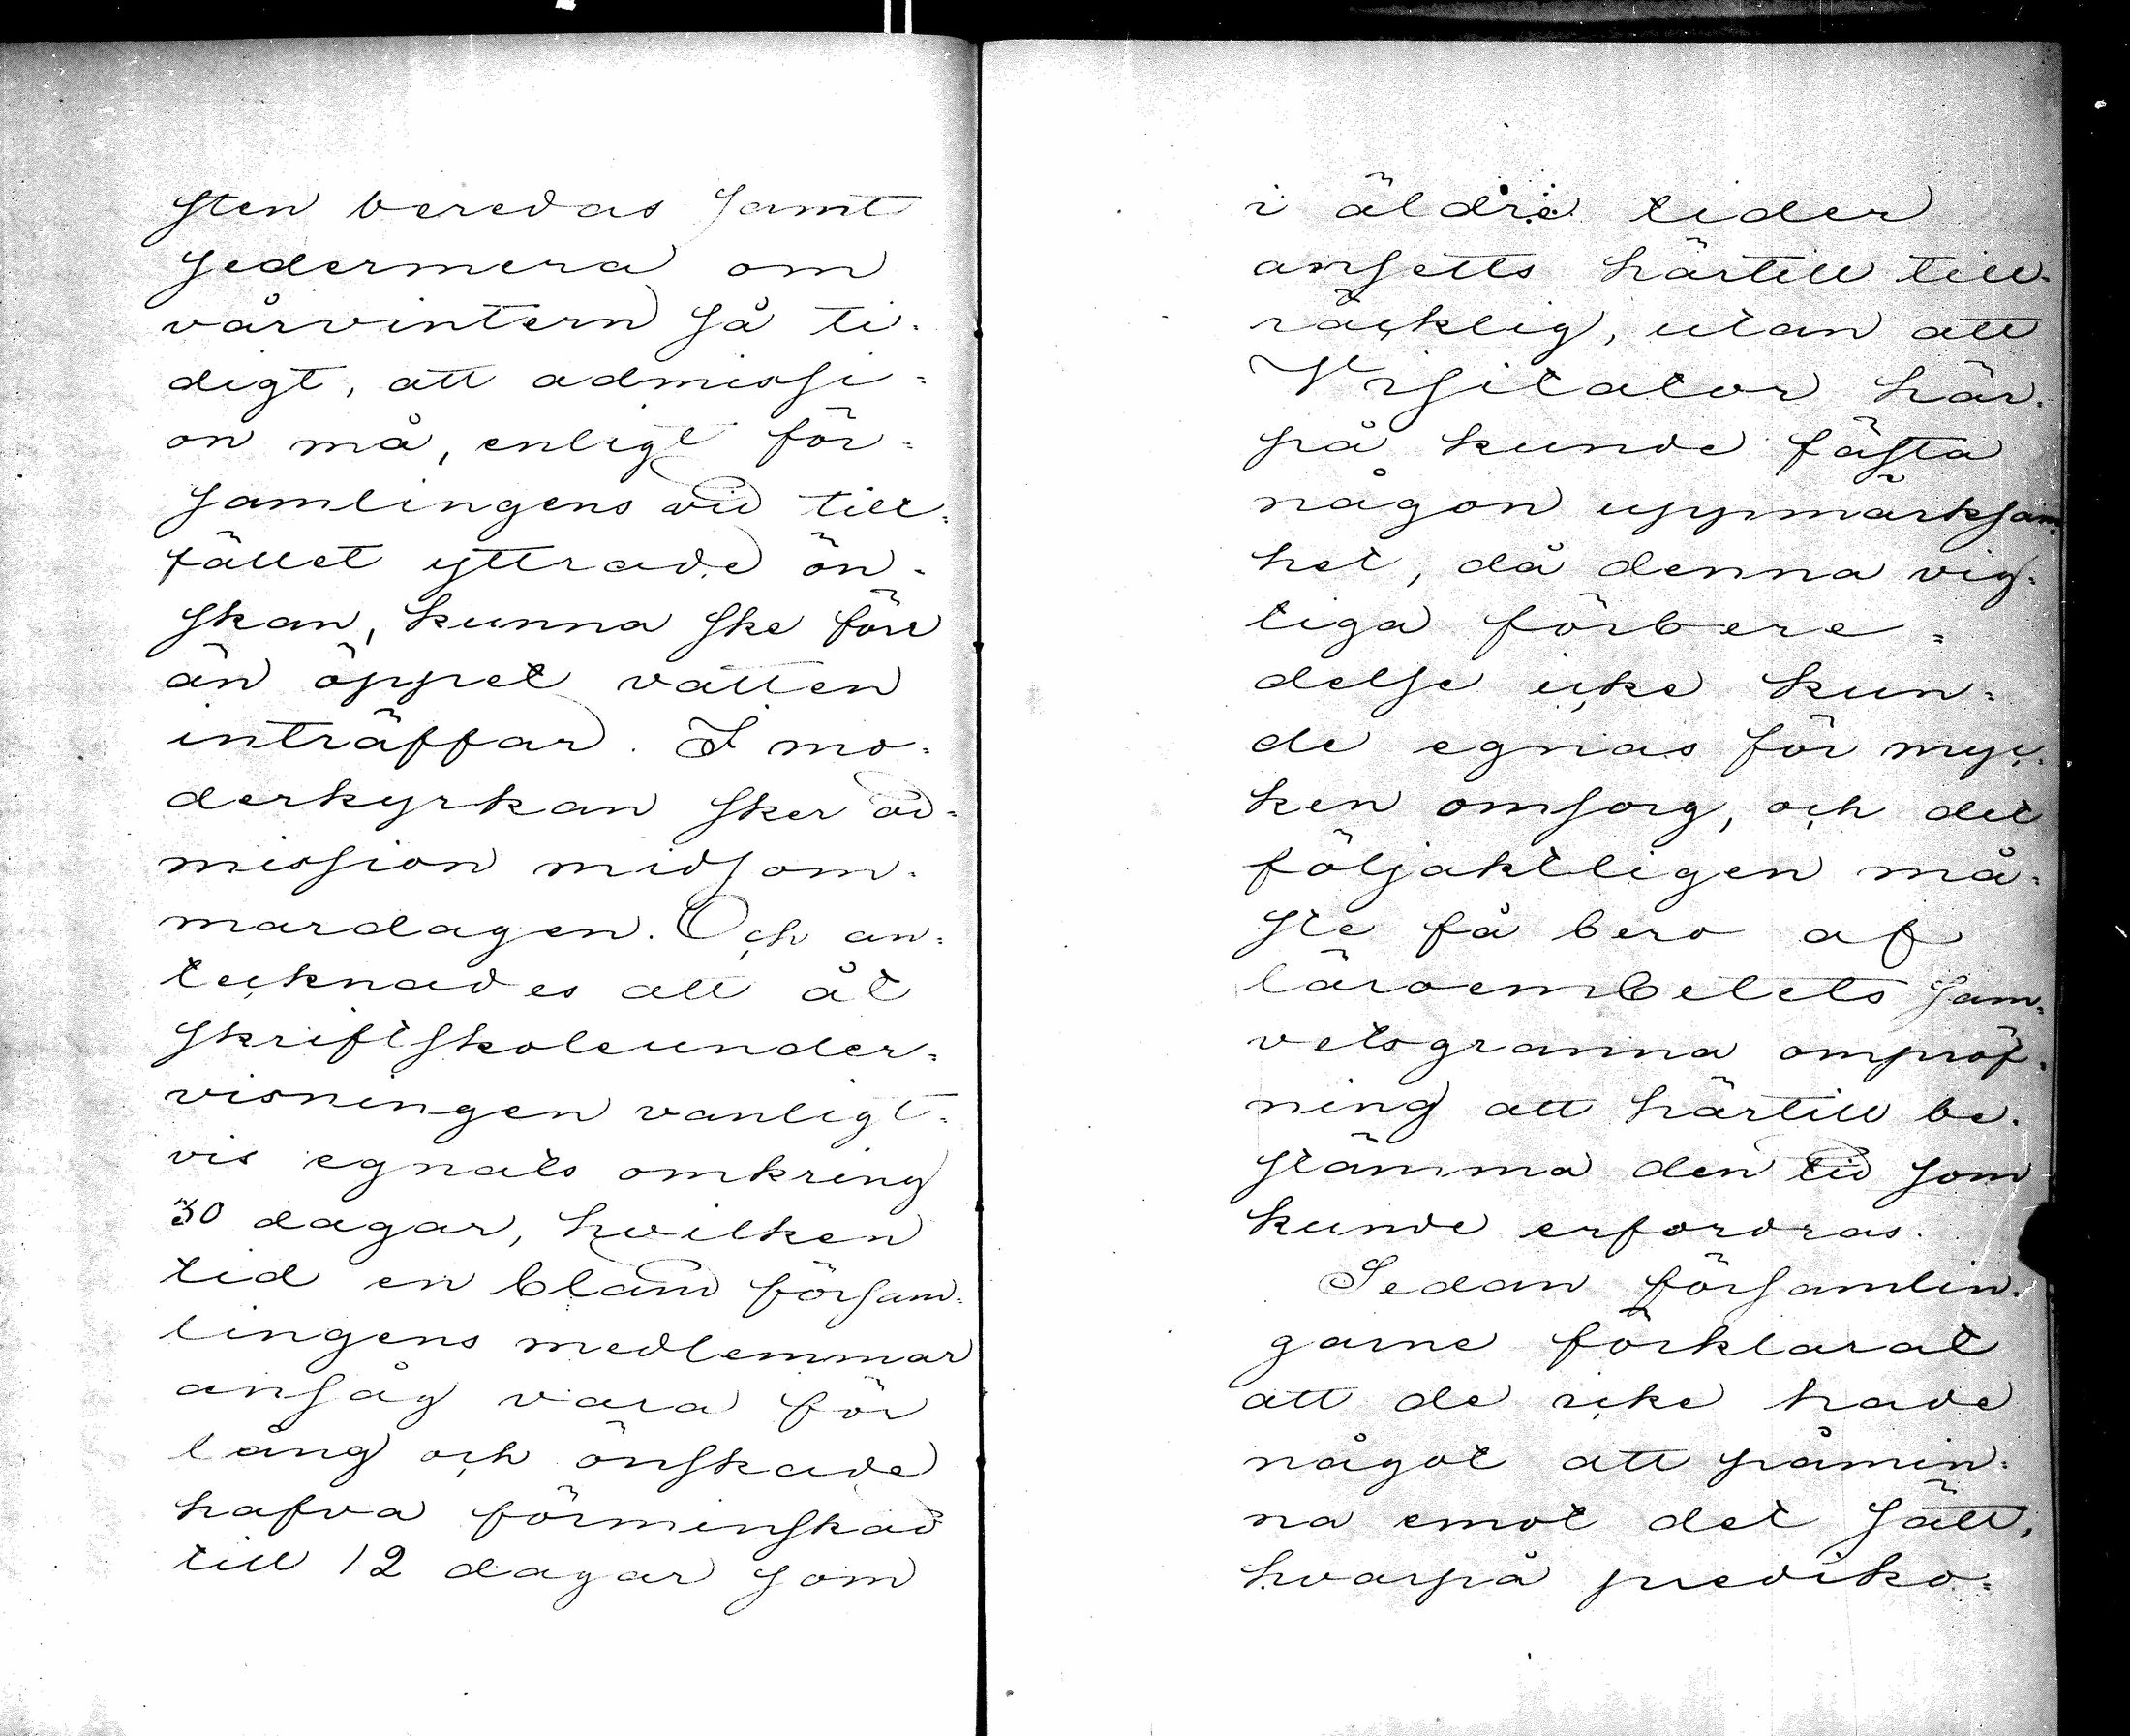 sten beredas samt
sedermera om
vårvintern så ti-
digt, att admissi=
on må, enligt för=
samlingens vid till=
fället yttrade ön-
skan, kunna ske förr
än öppet vatten
inträffar. I mo-
derkyrkan sker ad=
mission midsom-
mardagen. Och an=
tecknades att åt
skriftskoleunder=
visningen vanligt-
vis egnats omkring
30 dagar, hvilken
tid en bland försam-
lingens medlemmar
ansåg vara för
lång och önskade
hafva förminskad
till 12 dagar som
i äldre tider
ansetts härtill till-
räcklig, utan att
Visitator här-
på kunde fästa
någon uppmärksam=
het, då denna vig=
tiga förbere=
delse icke kun=
de egnas för myc-
ken omsorg, och det
följaktligen må=
ste få bero af
läroembetets sam=
vetsgranna ompröf-
ning att härtill be-
stämma den tid som
kunde erfordras.
Sedan församlin-
garne förklarat
att de icke hade
något att påmin-
na emot det sätt,
hvarpå prediko=